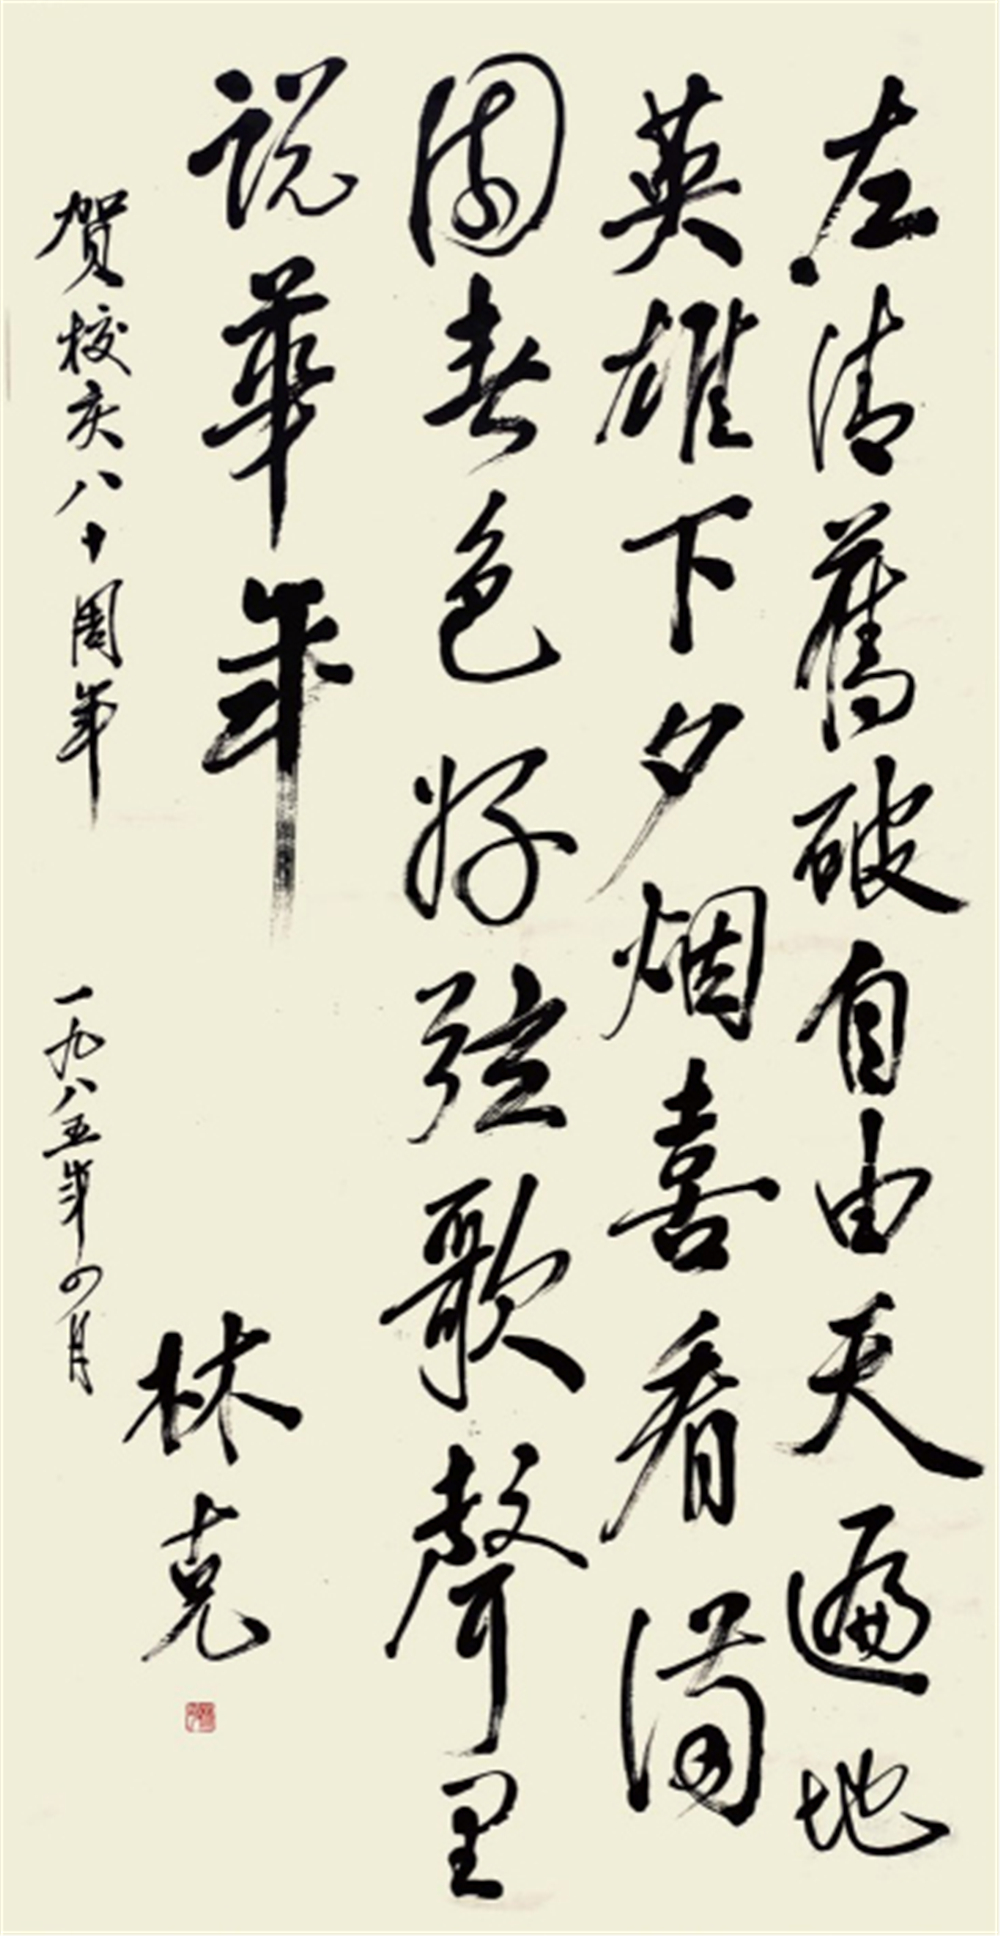 左清舊破自由天遍地
英雄下夕烟喜看满
園春色好弦歌聲里
説華年
賀校庆八十周年
一九八五年四月
林克